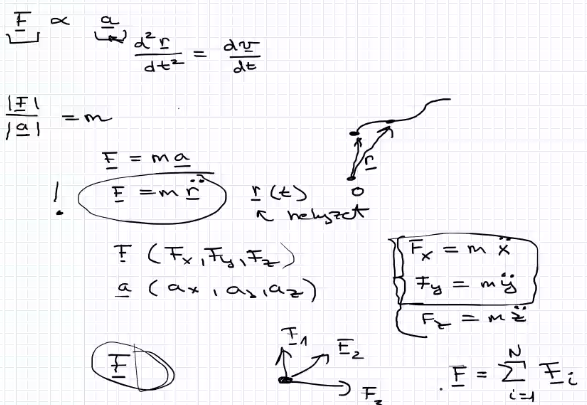 F ∝ a
d²r/dt² = dv/dt
|F|/|a| = m
F = m a
! F = m r̈ r(t)
r
0
↖ helyzet
F (Fx, Fy, Fz)
a (ax, ay, az)
Fx = m ẍ
Fy = m ÿ
Fz = m z̈
F
F1
F2
F3
F = Σ_{i=1}^{N} Fi